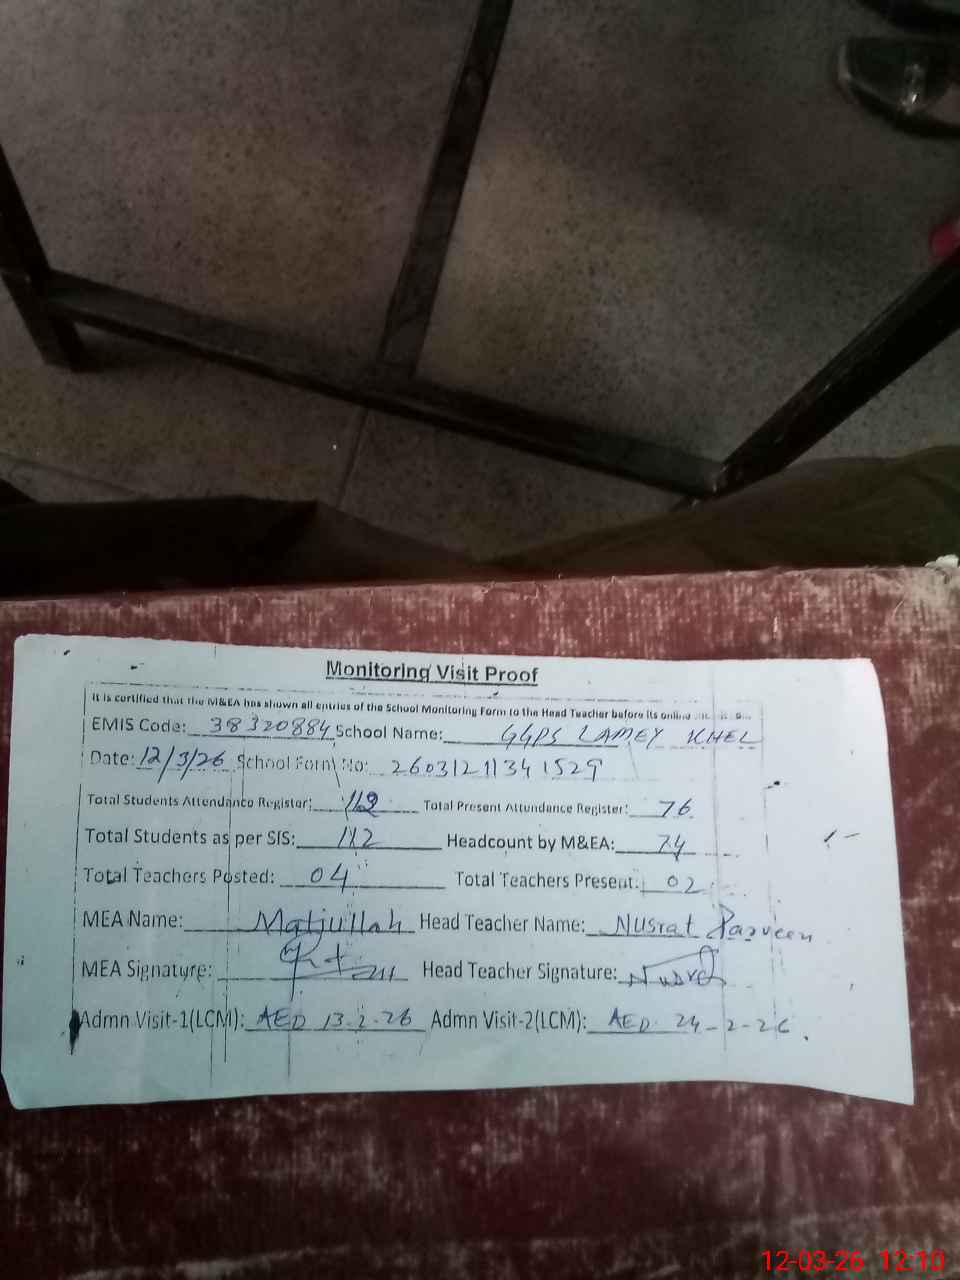 Monitoring Visit Proof
It is certified that the M&EA has shown all entries of the School Monitoring Form to the Head Teacher before its online
EMIS Code: 38320884 School Name: GGPS LAMEY KHEL
Date: 12/3/26 School Form No: 2603121134 1529
Total Students Attendance Register: 112 Total Present Attendance Register: 76
Total Students as per SIS: 112 Headcount by M&EA: 74
Total Teachers Posted: 04 Total Teachers Present: 02
MEA Name: Matjullah Head Teacher Name: Nusrat Parveen
MEA Signature: Head Teacher Signature: Nusrat
Admn Visit-1(LCM): AED 13-2-26 Admn Visit-2(LCM): AED 24-2-26
12-03-26 12:10